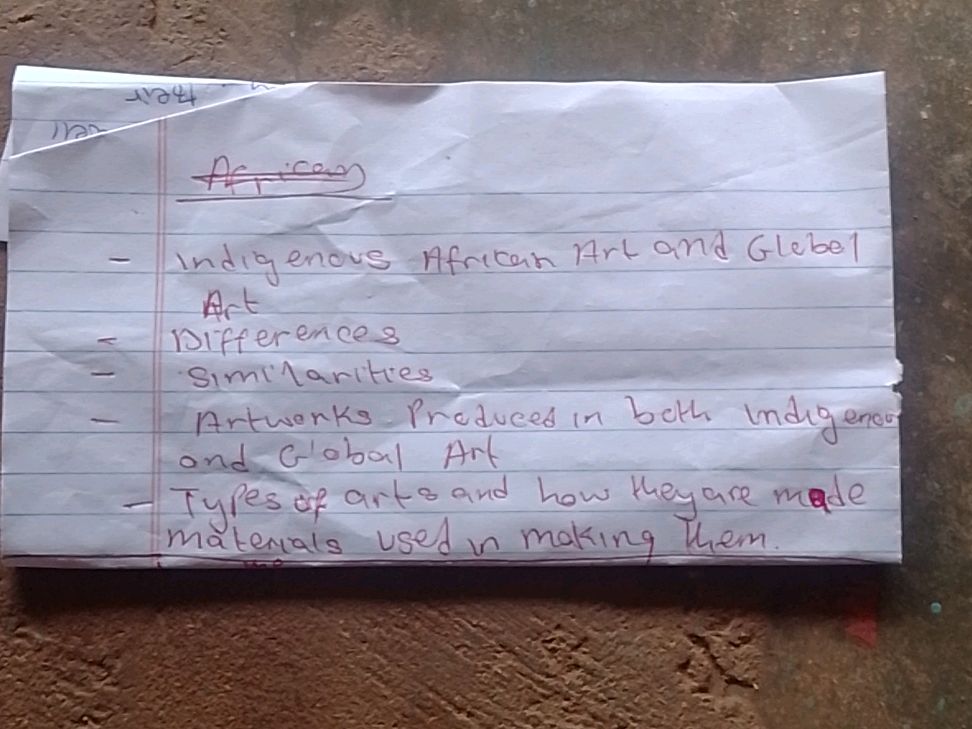 African
- Indigenous African Art and Glebel
Art
- Differences
- Similarities
- Artworks Produced in both indigenou
and Global Art
- Types of arts and how they are made
materials used in making them.